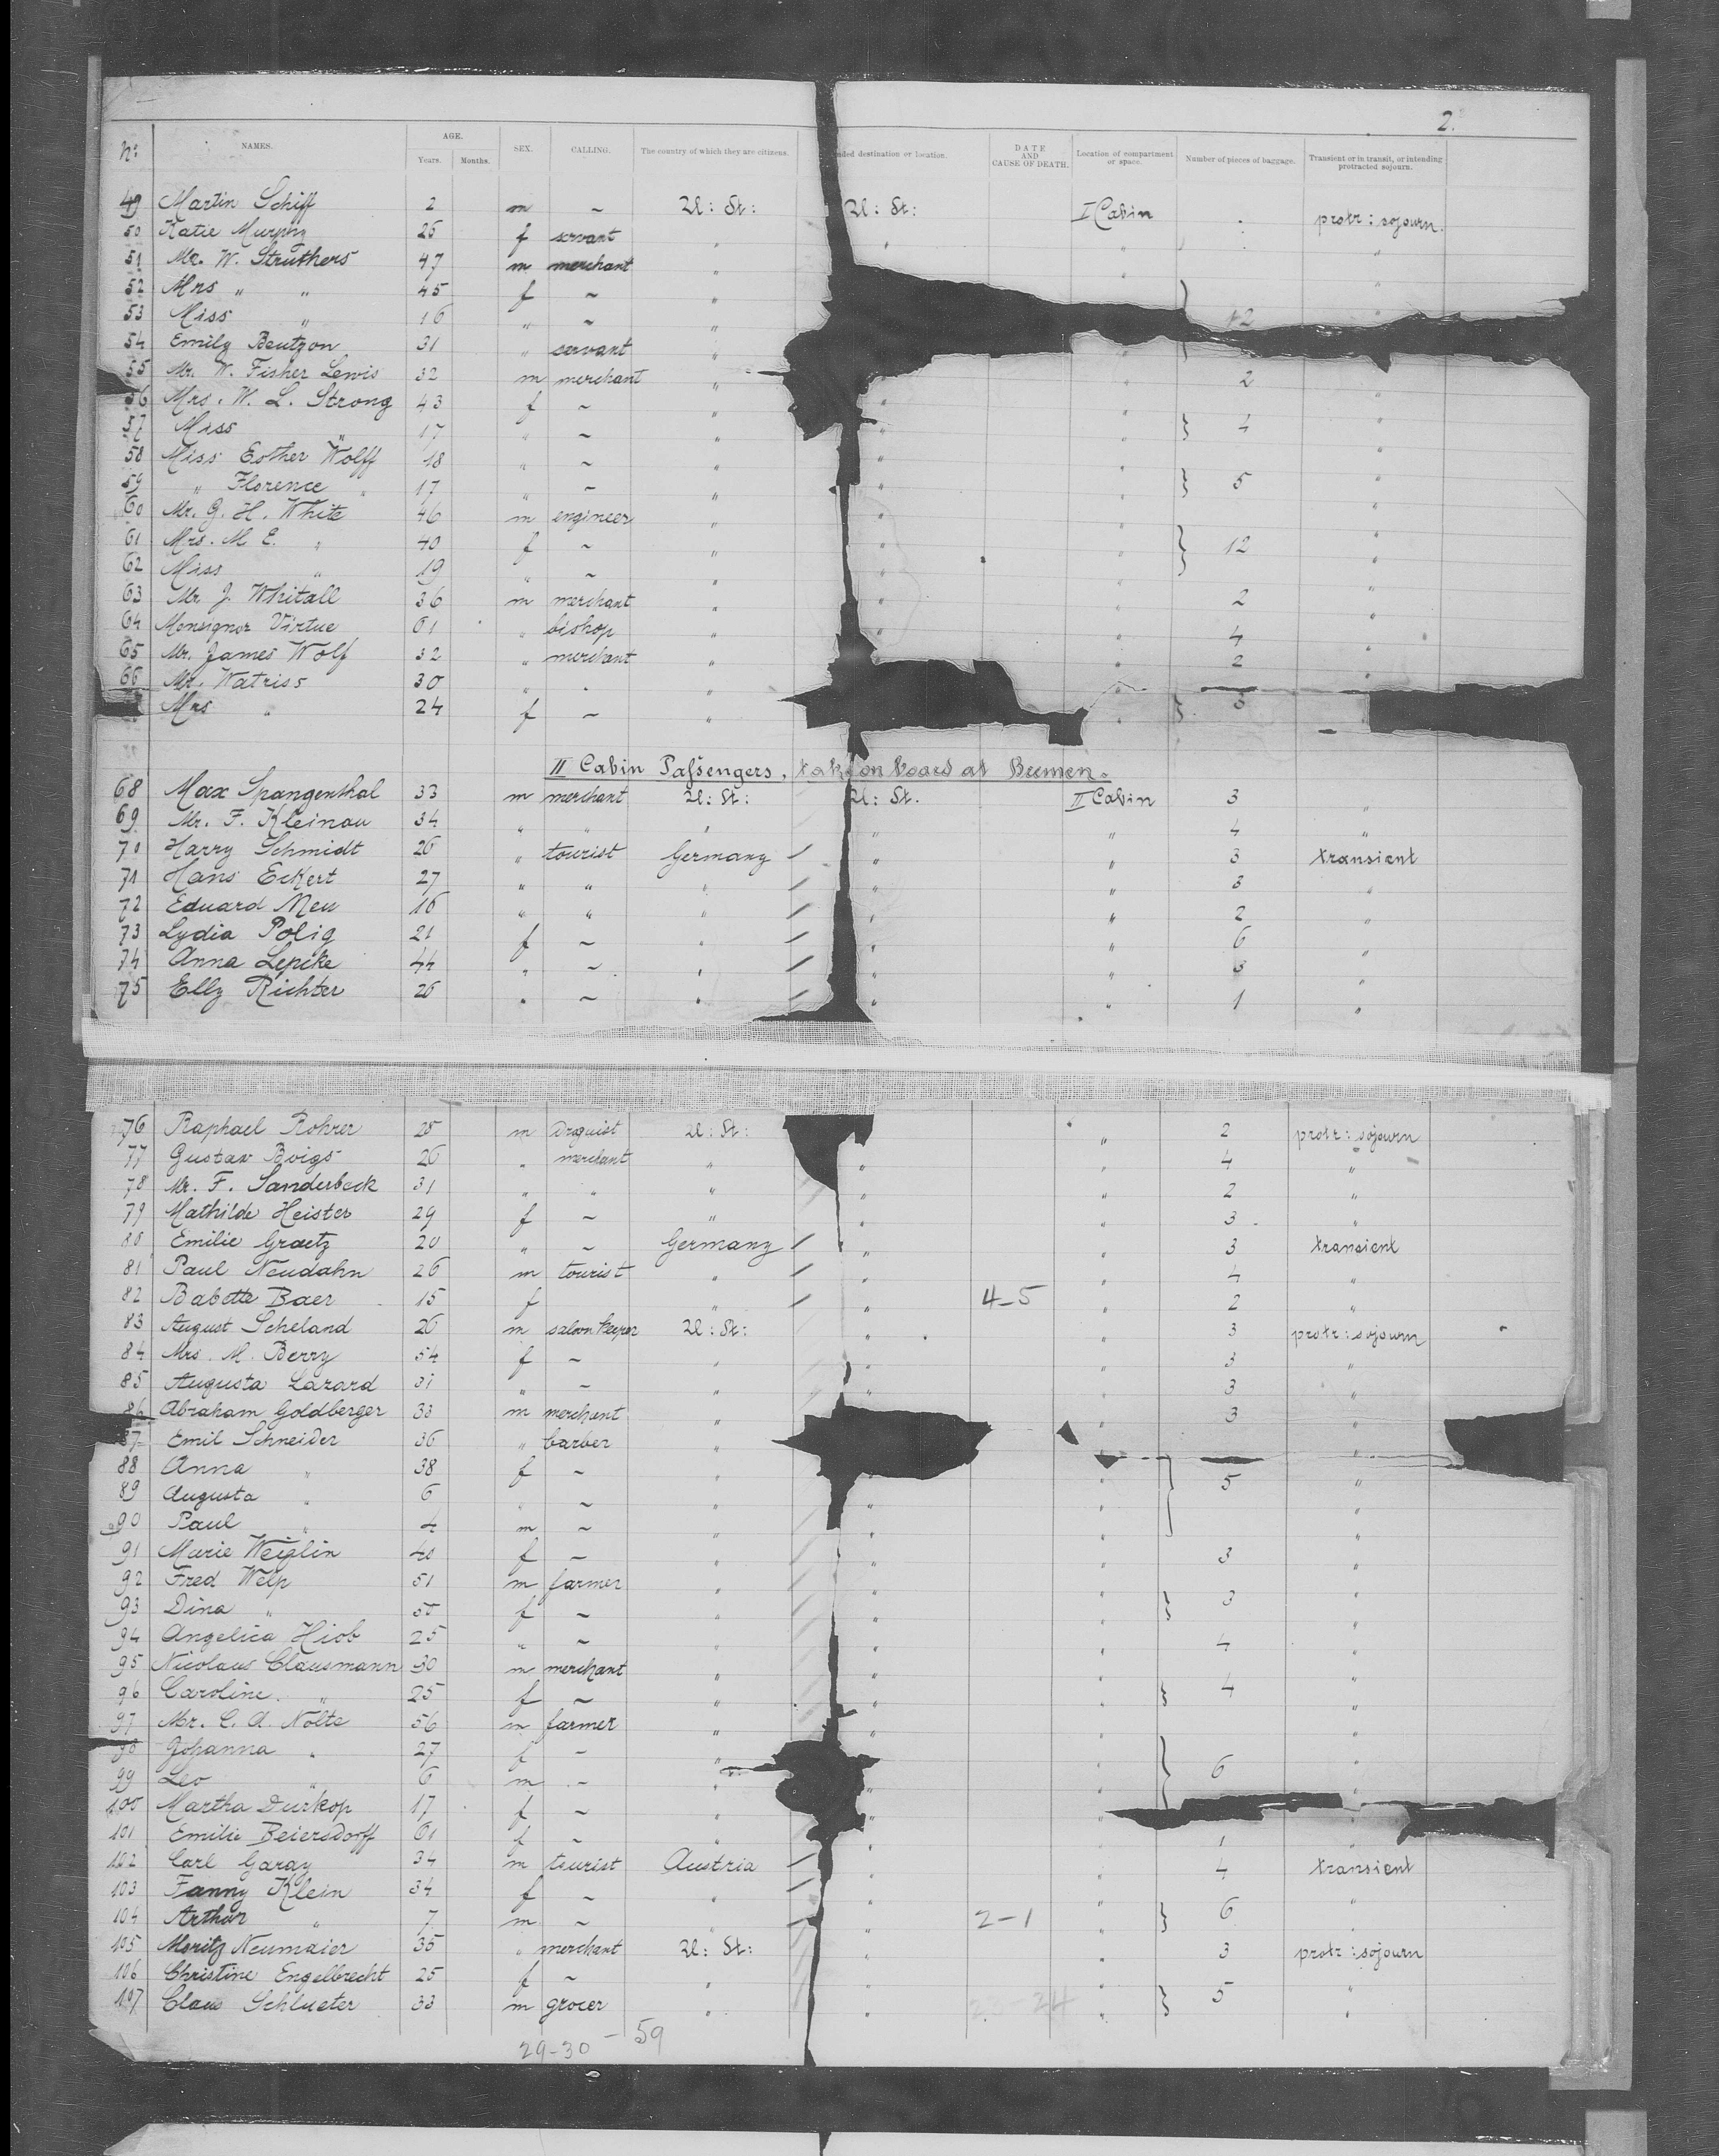 2.
No NAMES. AGE. Years. Months. SEX. CALLING. The country of which they are citizens. nded destination or location. DATE AND CAUSE OF DEATH. Location of compartment or space. Number of pieces of baggage. Transient or in transit, or intending protracted sojourn.
49 Martin Schiff 2 m ~ U: St: U: St: I Cabin protr: sojourn.
50 Katie Murphy 25 f servant " " "
51 Mr. W. Struthers 47 m merchant " " "
52 Mrs " " 45 f ~ " "
53 Miss " 16 " ~ " 12 "
54 Emily Beutzon 31 " servant " "
55 Mr. W. Fisher Lewis 32 m merchant " " 2 "
56 Mrs. W. L. Strong 43 f ~ " " " "
57 Miss " 17 " ~ " " " 4 "
58 Miss Esther Wolff 18 " ~ " " " "
59 " Florence " 17 " ~ " " " 5 "
60 Mr. G. H. White 46 m engineer " " " "
61 Mrs. M. E. " 40 f ~ " " " 12 "
62 Miss " 19 " ~ " " " "
63 Mr. J. Whitall 36 m merchant " " " 2 "
64 Monsignor Virtue 61 " bishop " " " 4 "
65 Mr. James Wolf 32 " merchant " " 2 "
66 Mr. Watriss 30 " " " "
Mrs " 24 f ~ " " 3
II Cabin Passengers, tak on board at Bremen.
68 Max Spangenthal 33 m merchant U: St: U: St. II Cabin 3 "
69 Mr. F. Kleinau 34 " " " " " 4 "
70 Harry Schmidt 26 " tourist Germany / " " 3 transient
71 Hans Eckert 27 " " " / " " 3 "
72 Eduard Neu 16 " " " / " " 2 "
73 Lydia Polig 21 f ~ " / " " 6 "
74 Anna Lepcke 44 " ~ " / " " 3 "
75 Elly Richter 26 " ~ " / " " 1 "
76 Raphael Rohrer 25 m druguist U: St: " 2 protr: sojourn
77 Gustav Boigs 26 " merchant " " " 4 "
78 Mr. F. Sanderbeck 31 " " " " " 2 "
79 Mathilde Heister 29 f ~ " " " 3 "
80 Emilie Graetz 20 " ~ Germany / " " 3 transient
81 Paul Neudahn 26 m tourist " / " " 4 "
82 Babette Baer 15 f " / " 4-5 " 2 "
83 August Scheland 26 m saloon keeper U: St: " " 3 protr: sojourn
84 Mrs. M. Berry 54 f ~ " " " 3 "
85 Augusta Lazard 31 " ~ " " " 3 "
86 Abraham Goldberger 33 m merchant " " 3 "
87 Emil Schneider 36 " barber " "
88 Anna " 38 f ~ " " 5 "
89 Augusta " 6 " ~ " " " "
90 Paul " 4 m ~ " " " "
91 Marie Weiglin 40 f ~ " " " 3 "
92 Fred Welp 51 m farmer " " " "
93 Dina " 50 f ~ " " " 3 "
94 Angelica Hiob 25 " ~ " " " 4 "
95 Nicolaus Clausmann 30 m merchant " " " "
96 Caroline " 25 f ~ " " " 4 "
97 Mr. C. A. Nolte 56 m farmer " " " "
98 Johanna " 27 f ~ " " " 6 "
99 Leo " 6 m ~ " " " "
100 Martha Durkop 17 f ~ " " "
101 Emilie Beiersdorff 61 f ~ " " 1 "
102 Carl Garay 34 m tourist Austria / " " 4 transient
103 Fanny Klein 34 f ~ " / " " "
104 Arthur " 7 m ~ " / " 2-1 " 6 "
105 Moritz Neumaier 35 " merchant U: St: " " 3 protr: sojourn
106 Christine Engelbrecht 25 f ~ " " " "
107 Claus Schlueter 33 m grocer " " " 5 "
29-30 - 59